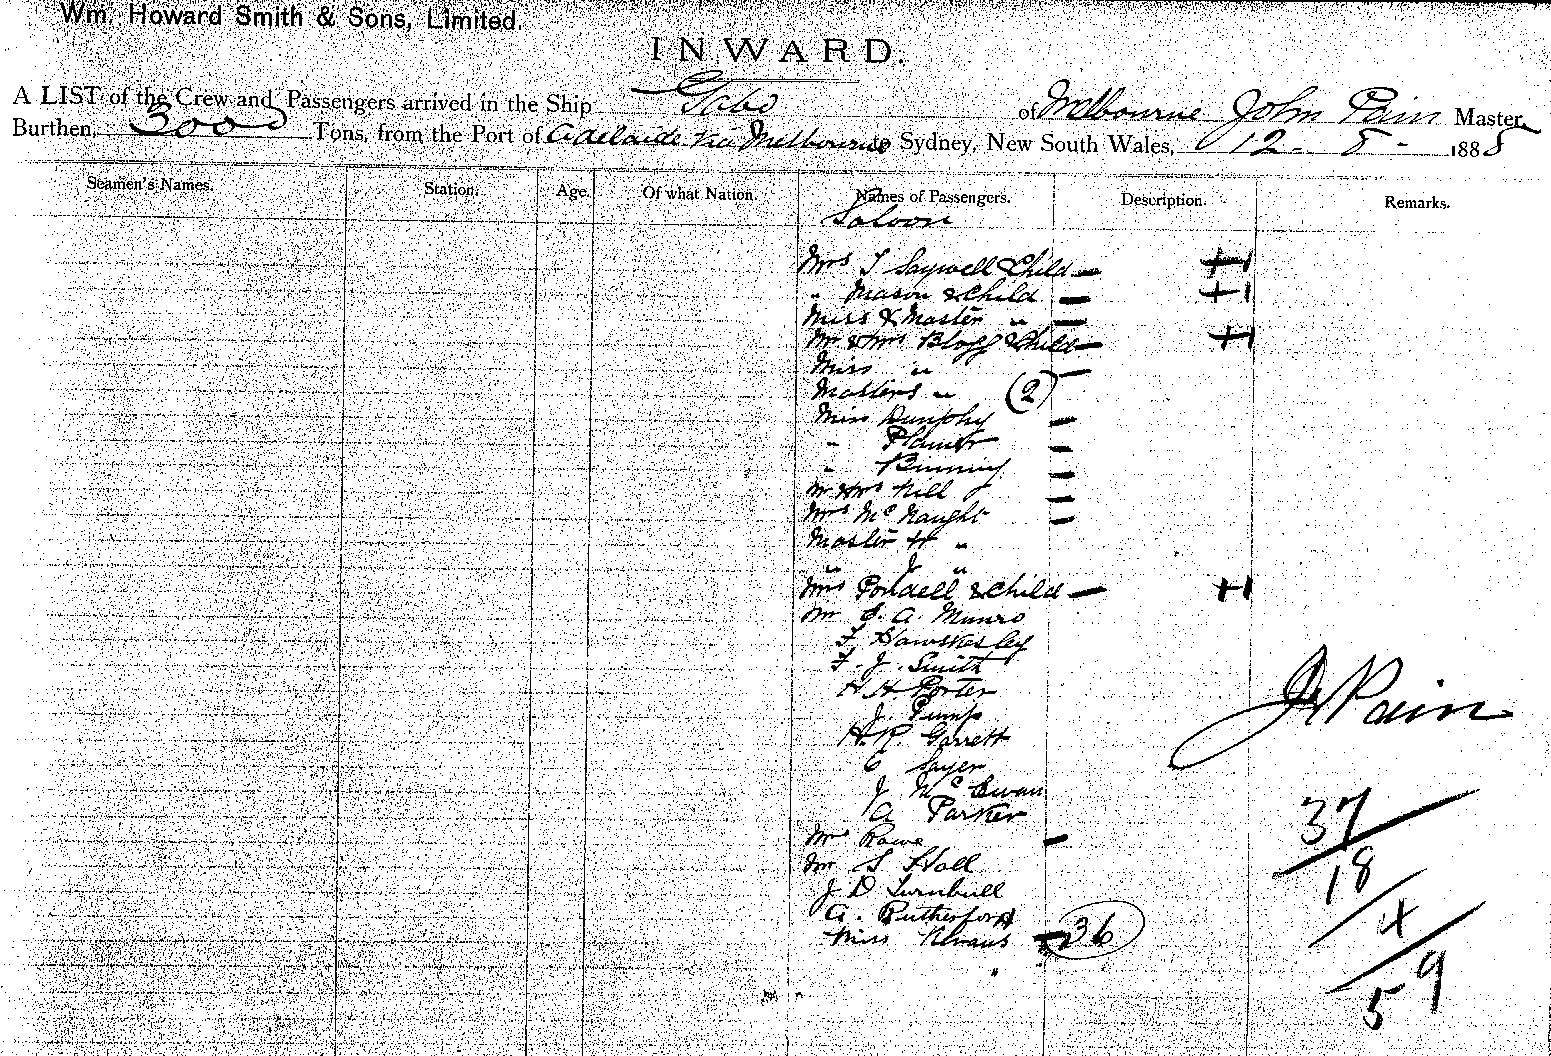 Wm. Howard Smith & Sons, Limited.
INWARD.
A LIST of the Crew and Passengers arrived in the Ship Gabo of Melbourne John Pain Master,
Burthen, 3000 Tons, from the Port of Adelaide via Melbourne to Sydney, New South Wales, 12 - 8 - 1888
Seamen's Names. Station. Age. Of what Nation. Names of Passengers. Description. Remarks.
Saloon
Mrs T Saywell & Child — +1
" Mason & Child — +1
Miss & Master " —
Mr & Mrs & Child — +1
Miss " —
Masters " (2)
Miss Dunphy —
" —
" Bunning —
Mr & Mrs Hill —
Mrs McNaught —
Master H "
" J "
Mrs & Child — +1
Mr A. Munro
F. Hawkesley
F. J. Smith
H H Porter
J. Pump
H. R. Garrett
C Sayer
J McEwan
A Parker
Rowe —
Mr S Hall
J D Turnbull
A. Rutherford
Miss — 36
J Pain
37
18
4
59